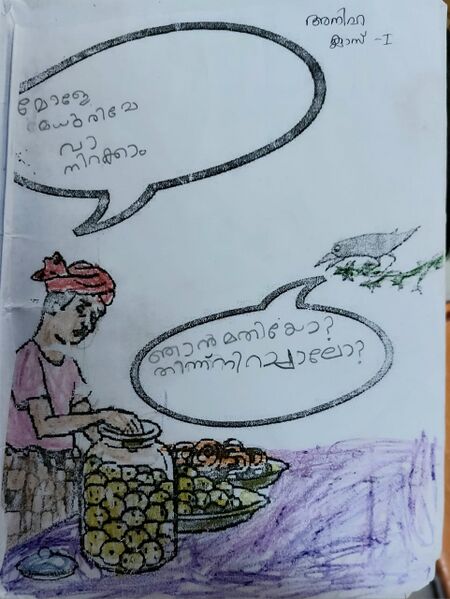 അനിഹ
ക്ലാസ് -I
മോളേ
മധുരിമേ
വാ
നിറക്കാം
ഞാൻ മതിയോ?
തിന്ന് നിറച്ചാലോ?